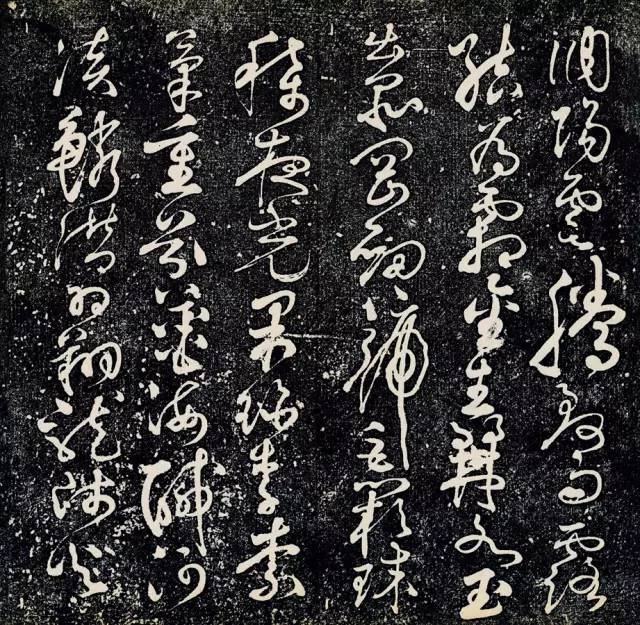 調陽雲騰致雨露
結為霜金生麗水玉
出崑岡劍號巨闕珠
稱夜光果珍李柰
菜重芥薑海鹹河
淡鱗潛羽翔龍師火